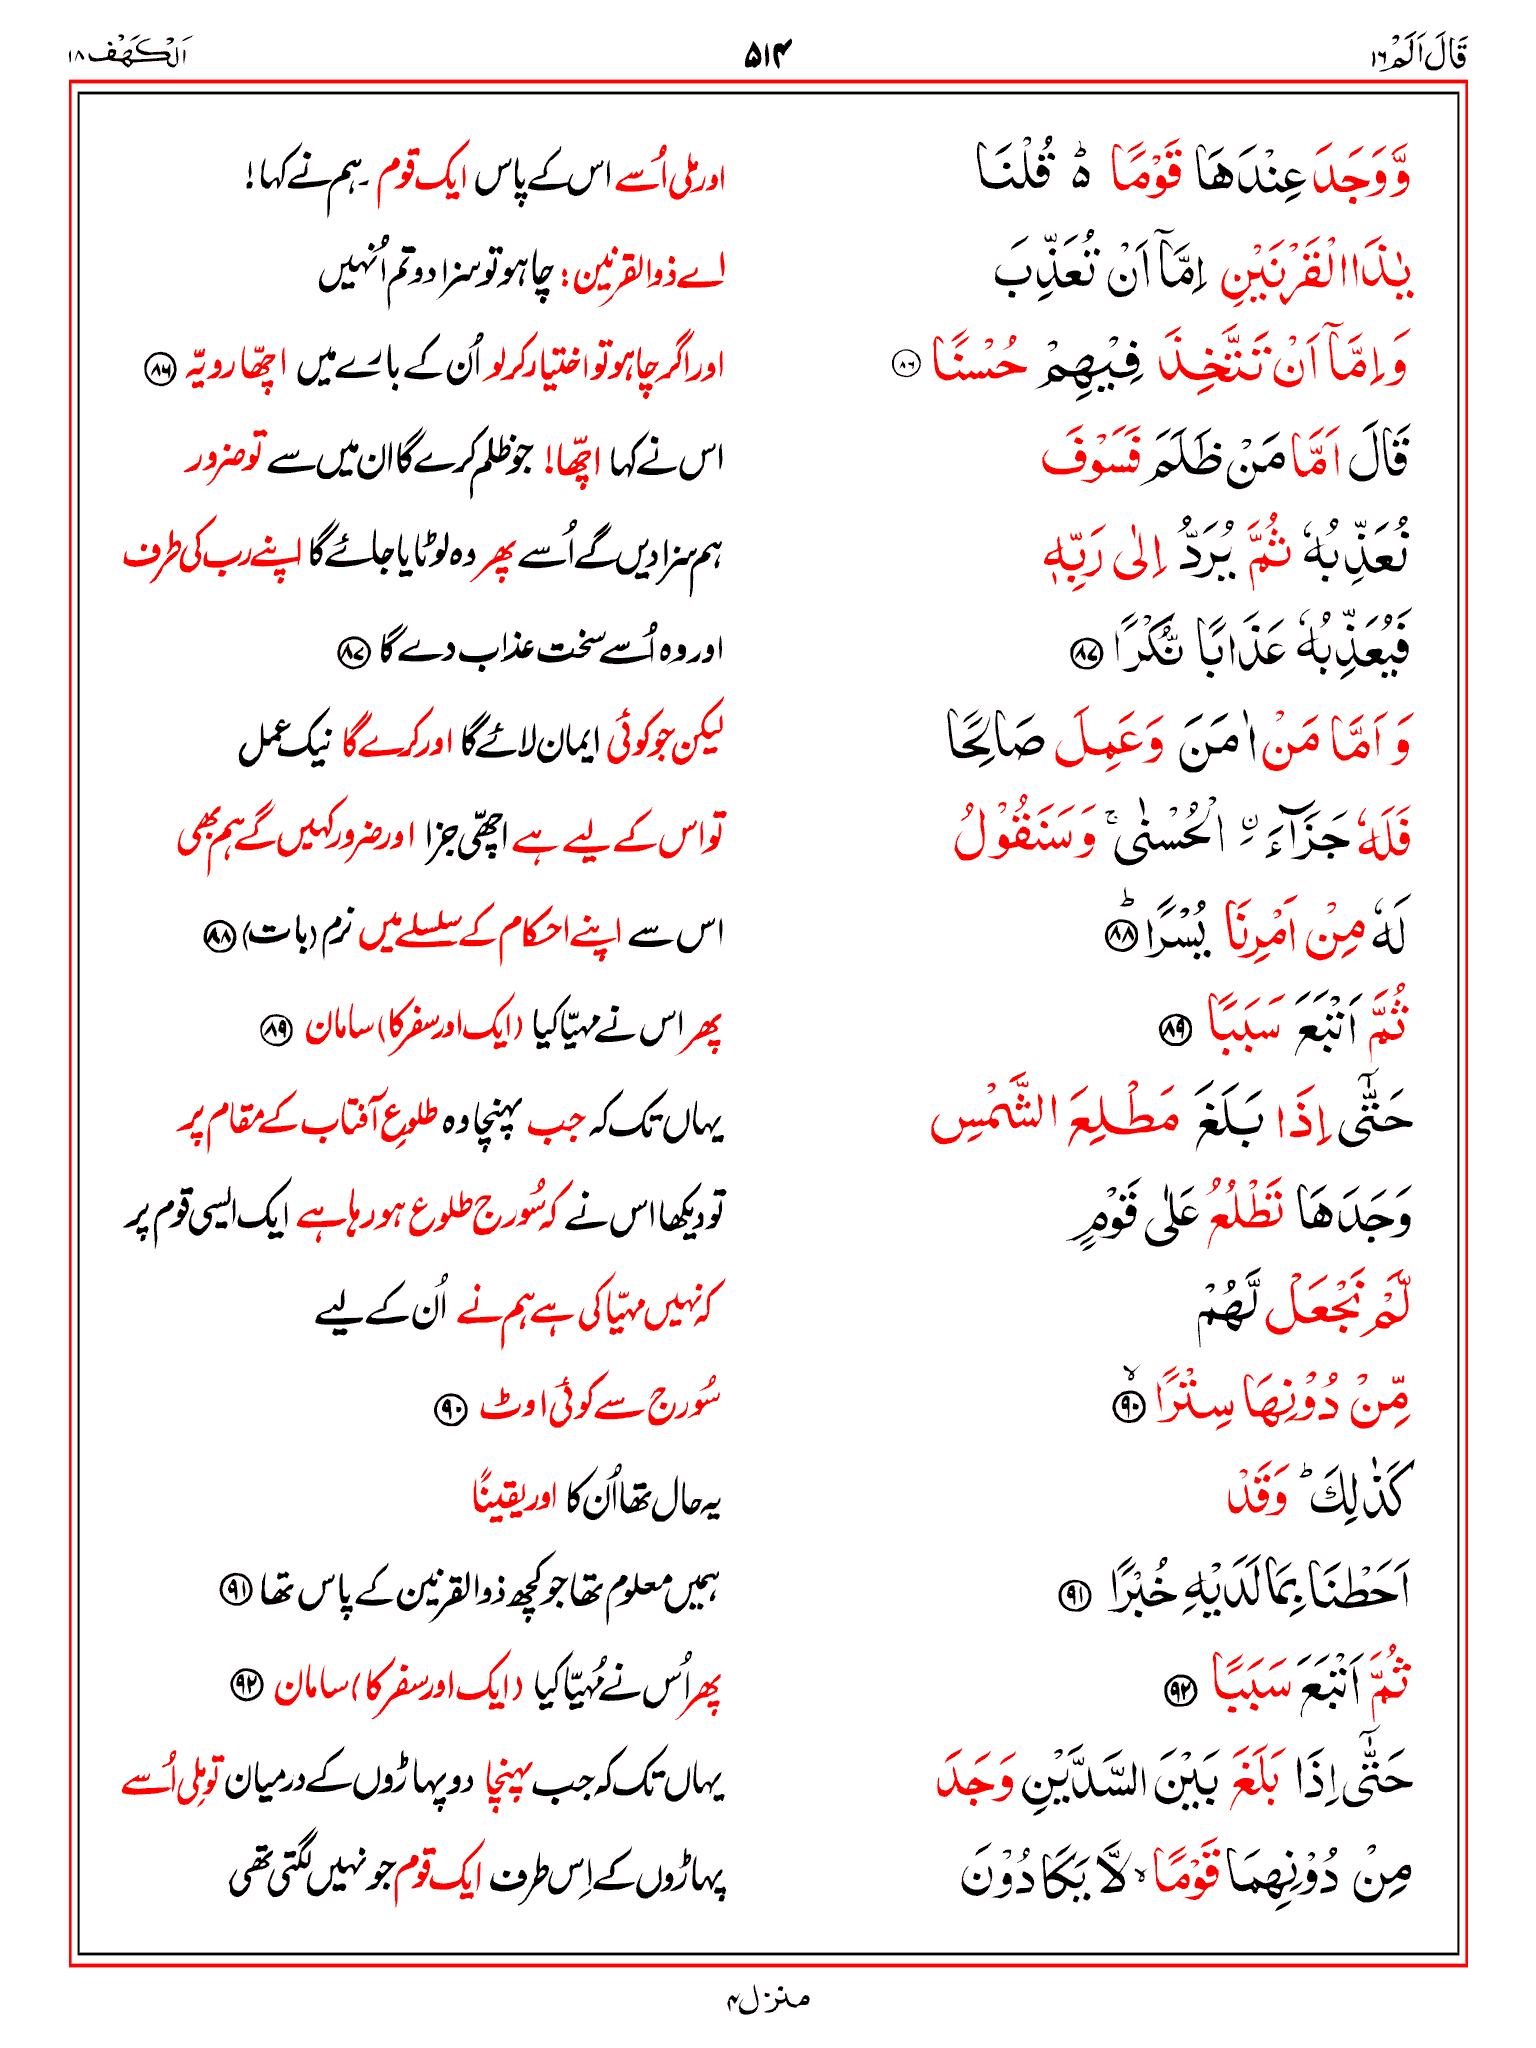 قَالَ اَلَمْ ١٦ ۵۱۴ اَلْكَهْف ١٨
وَّوَجَدَ عِنْدَهَا قَوْمًا ۵ؕ قُلْنَا اور ملی اُسے اس کے پاس ایک قوم ۔ ہم نے کہا!
يٰذَا الْقَرْنَيْنِ اِمَّاۤ اَنْ تُعَذِّبَ اے ذوالقرنین؛ چاہو تو سزا دو تم اُنہیں
وَاِمَّاۤ اَنْ تَتَّخِذَ فِيْهِمْ حُسْنًا ﴿۸۶﴾ اور اگر چاہو تو اختیار کر لو اُن کے بارے میں اچھّا رویّہ ﴿۸۶﴾
قَالَ اَمَّا مَنْ ظَلَمَ فَسَوْفَ اس نے کہا اچھّا! جو ظلم کرے گا ان میں سے تو ضرور
نُعَذِّبُهٗ ثُمَّ يُرَدُّ اِلٰى رَبِّهٖ ہم سزا دیں گے اُسے پھر وہ لوٹایا جائے گا اپنے رب کی طرف
فَيُعَذِّبُهٗ عَذَابًا نُّكْرًا ﴿۸۷﴾ اور وہ اُسے سخت عذاب دے گا ﴿۸۷﴾
وَاَمَّا مَنْ اٰمَنَ وَعَمِلَ صَالِحًا لیکن جو کوئی ایمان لائے گا اور کرے گا نیک عمل
فَلَهٗ جَزَآءَ ۨ الْحُسْنٰى ۚ وَسَنَقُوْلُ تو اس کے لیے ہے اچھّی جزا اور ضرور کہیں گے ہم بھی
لَهٗ مِنْ اَمْرِنَا يُسْرًا ؕ﴿۸۸﴾ اس سے اپنے احکام کے سلسلے میں نرم (بات) ﴿۸۸﴾
ثُمَّ اَتْبَعَ سَبَبًا ﴿۸۹﴾ پھر اس نے مہیّا کیا (ایک اور سفر کا) سامان ﴿۸۹﴾
حَتّٰۤى اِذَا بَلَغَ مَطْلِعَ الشَّمْسِ یہاں تک کہ جب پہنچا وہ طلوعِ آفتاب کے مقام پر
وَجَدَهَا تَطْلُعُ عَلٰى قَوْمٍ تو دیکھا اس نے کہ سُورج طلوع ہو رہا ہے ایک ایسی قوم پر
لَّمْ نَجْعَلْ لَّهُمْ کہ نہیں مہیّا کی ہے ہم نے اُن کے لیے
مِّنْ دُوْنِهَا سِتْرًا ۙ﴿۹۰﴾ سُورج سے کوئی اوٹ ﴿۹۰﴾
كَذٰلِكَ ؕ وَقَدْ یہ حال تھا اُن کا اور یقینًا
اَحَطْنَا بِمَا لَدَيْهِ خُبْرًا ﴿۹۱﴾ ہمیں معلوم تھا جو کچھ ذوالقرنین کے پاس تھا ﴿۹۱﴾
ثُمَّ اَتْبَعَ سَبَبًا ﴿۹۲﴾ پھر اُس نے مُہیّا کیا (ایک اور سفر کا) سامان ﴿۹۲﴾
حَتّٰۤى اِذَا بَلَغَ بَيْنَ السَّدَّيْنِ وَجَدَ یہاں تک کہ جب پہنچا دو پہاڑوں کے درمیان تو مِلی اُسے
مِنْ دُوْنِهِمَا قَوْمًا ۙ لَّا يَكَادُوْنَ پہاڑوں کے اِس طرف ایک قوم جو نہیں لگتی تھی
منزل ۴